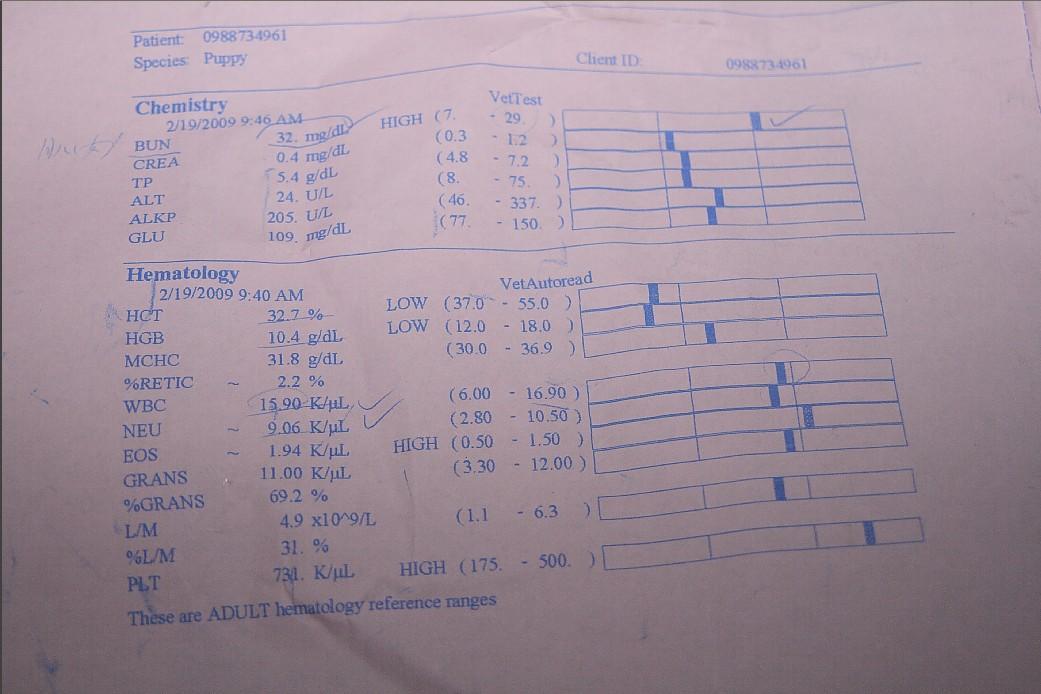 Patient: 0988734961
Species: Puppy Client ID: 0988734961
Chemistry VetTest
2/19/2009 9:46 AM
BUN 32. mg/dL HIGH (7. - 29. )
CREA 0.4 mg/dL (0.3 - 1.2 )
TP 5.4 g/dL (4.8 - 7.2 )
ALT 24. U/L (8. - 75. )
ALKP 205. U/L (46. - 337. )
GLU 109. mg/dL (77. - 150. )
Hematology VetAutoread
2/19/2009 9:40 AM
HCT 32.7 % LOW (37.0 - 55.0 )
HGB 10.4 g/dL LOW (12.0 - 18.0 )
MCHC 31.8 g/dL (30.0 - 36.9 )
%RETIC ~ 2.2 %
WBC 15.90 K/µL (6.00 - 16.90 )
NEU ~ 9.06 K/µL (2.80 - 10.50 )
EOS ~ 1.94 K/µL HIGH (0.50 - 1.50 )
GRANS 11.00 K/µL (3.30 - 12.00 )
%GRANS 69.2 %
L/M 4.9 x10^9/L (1.1 - 6.3 )
%L/M 31. %
PLT 731. K/µL HIGH (175. - 500. )
These are ADULT hematology reference ranges